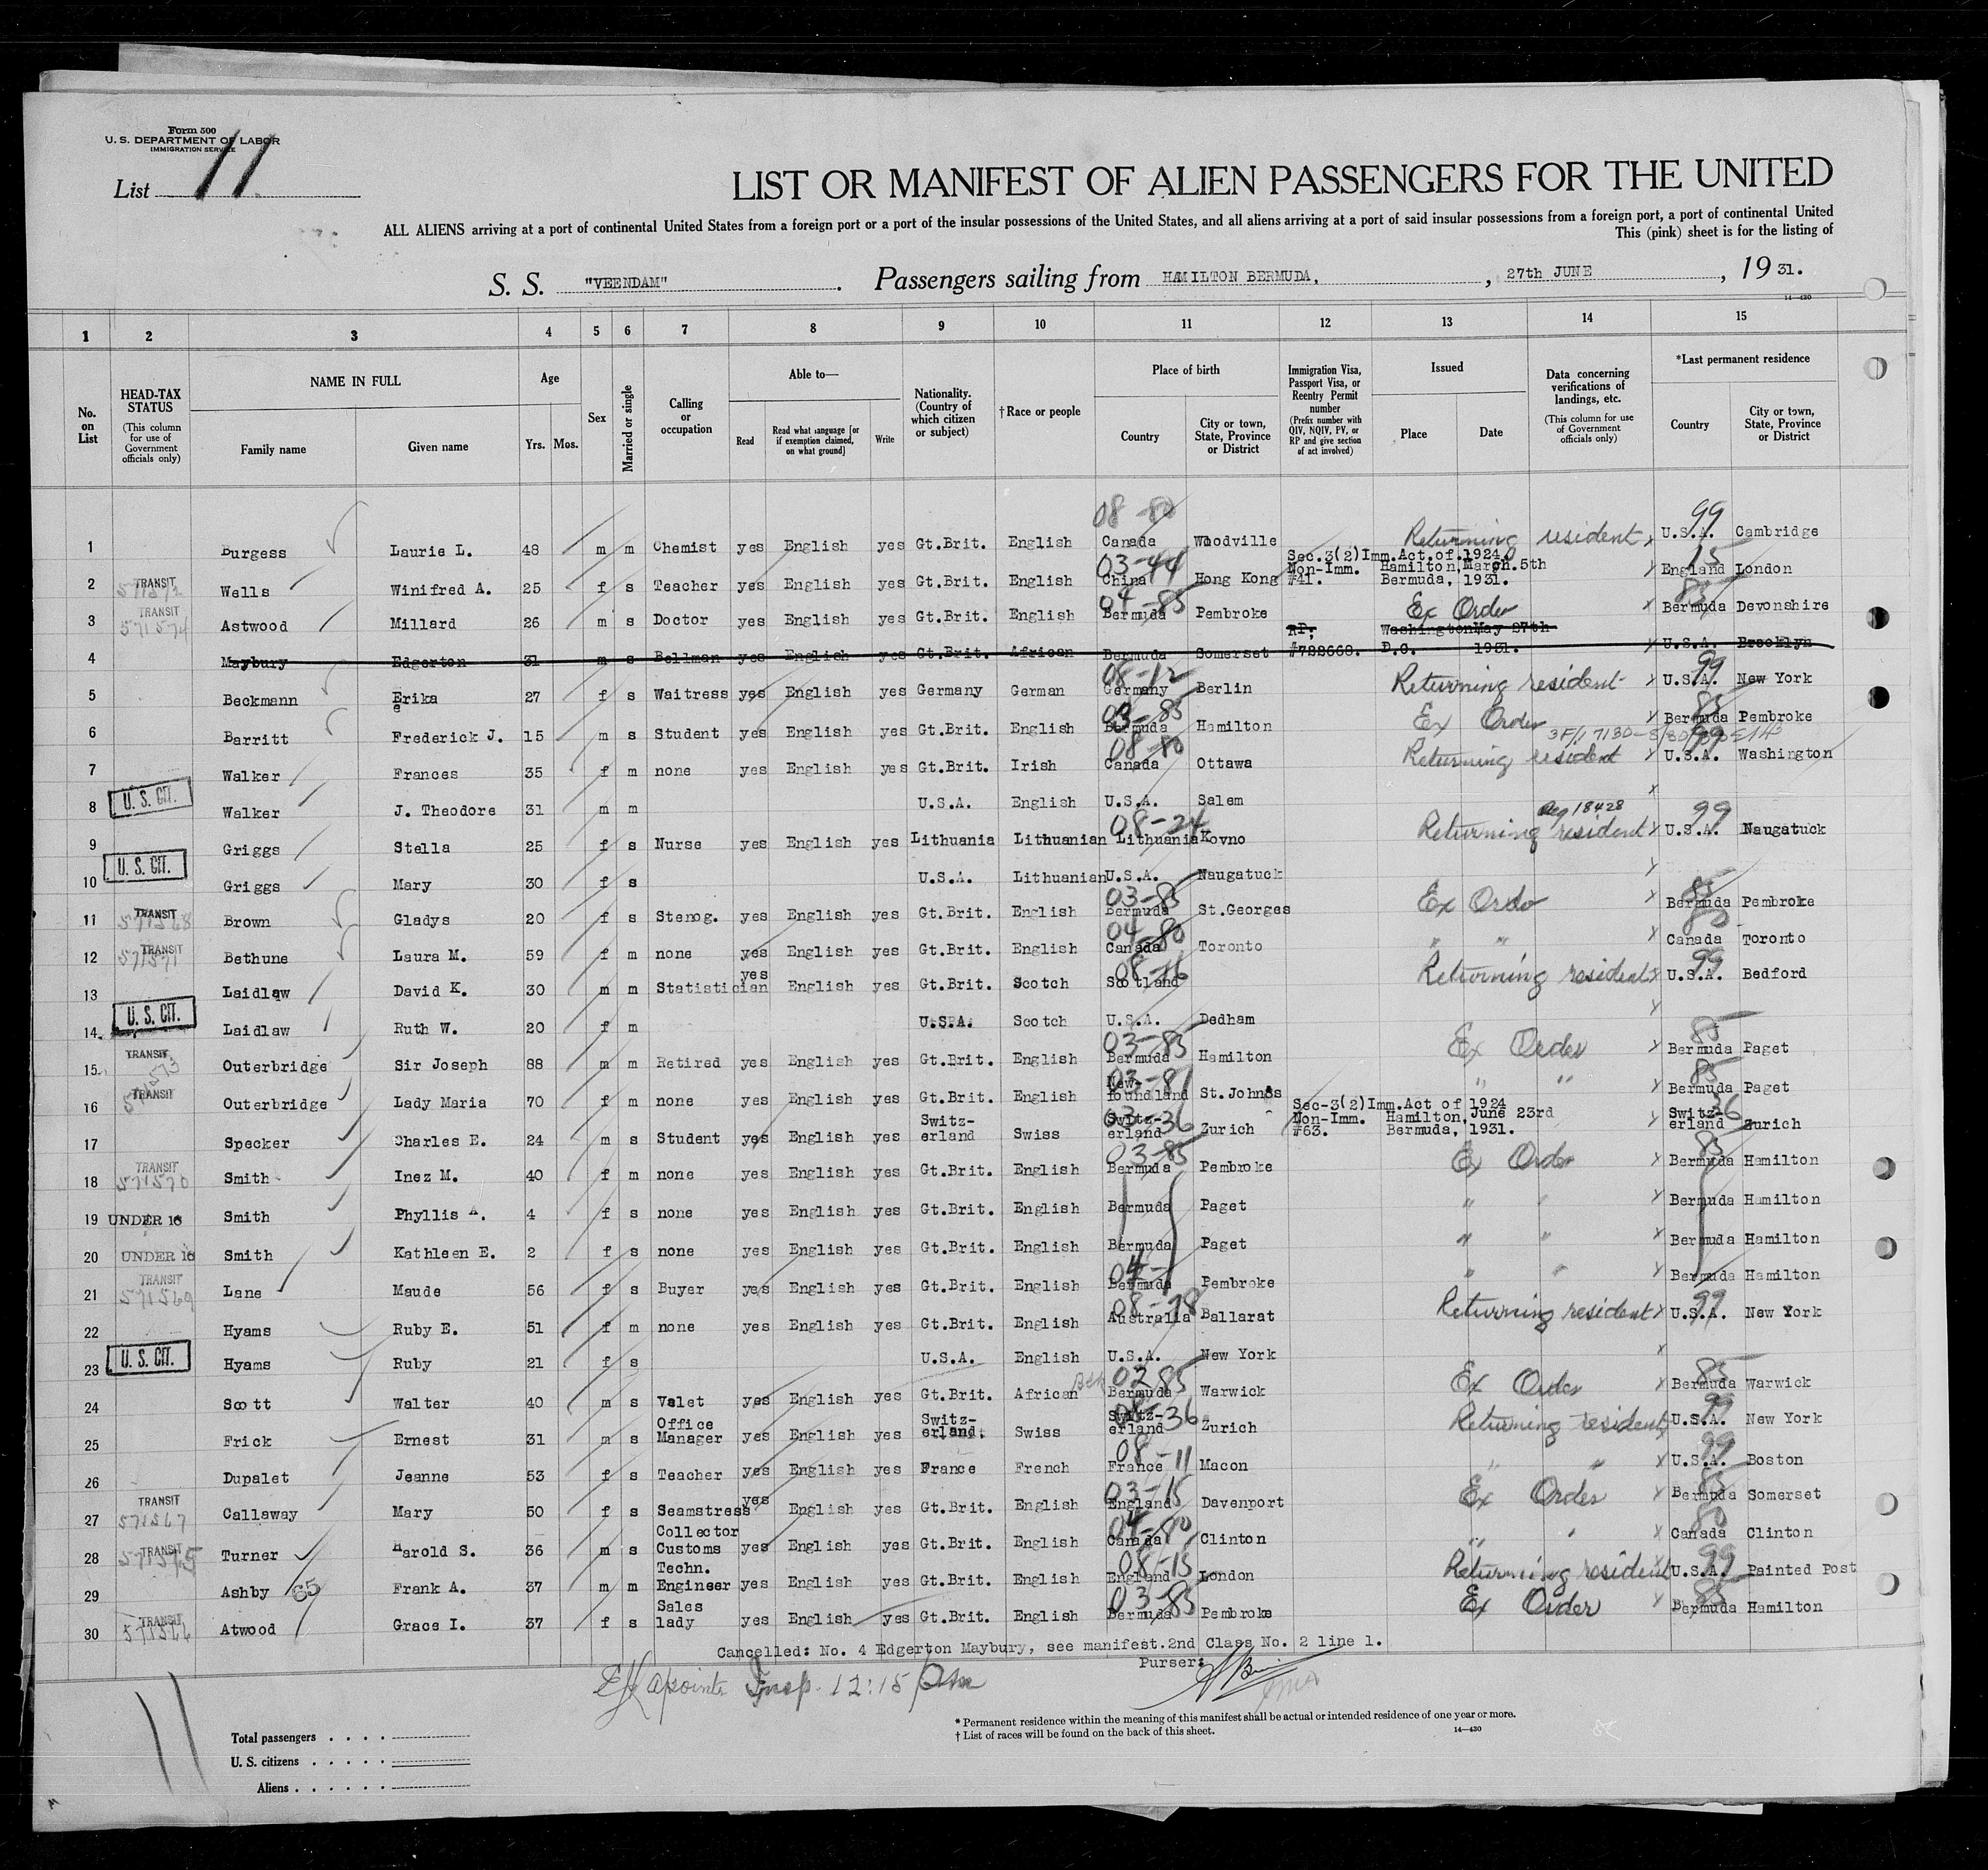 Form 500
U. S. DEPARTMENT OF LABOR
IMMIGRATION SERVICE
List 11
LIST OR MANIFEST OF ALIEN PASSENGERS FOR THE UNITED
ALL ALIENS arriving at a port of continental United States from a foreign port or a port of the insular possessions of the United States, and all aliens arriving at a port of said insular possessions from a foreign port, a port of continental United
This (pink) sheet is for the listing of
S. S. "VEENDAM". Passengers sailing from HAMILTON BERMUDA, , 27th JUNE , 1931.
14—430
1 2 3 4 5 6 7 8 9 10 11 12 13 14 15
No. on List
HEAD-TAX STATUS (This column for use of Government officials only)
NAME IN FULL Family name Given name
Age Yrs. Mos.
Sex
Married or single
Calling or occupation
Able to— Read Read what language [or if exemption claimed, on what ground] Write
Nationality. (Country of which citizen or subject)
†Race or people
Place of birth Country City or town, State, Province or District
Immigration Visa, Passport Visa, or Reentry Permit number (Prefix number with QIV, NQIV, PV, or RP and give section of act involved)
Issued Place Date
Data concerning verifications of landings, etc. (This column for use of Government officials only)
*Last permanent residence Country City or town, State, Province or District
1 Burgess Laurie L. 48 m m Chemist yes English yes Gt.Brit. English 08-80 Canada Woodville Returning resident x 99 U.S.A. Cambridge
2 TRANSIT Wells Winifred A. 25 f s Teacher yes English yes Gt.Brit. English 03-44 China Hong Kong Sec.3(2)Imm.Act.of.1924. Non-Imm. #41. Hamilton, Bermuda, March.5th 1931. x 15 England London
3 TRANSIT 571574 Astwood Millard 26 m s Doctor yes English yes Gt.Brit. English 04-85 Bermuda Pembroke Ex Order x 85 Bermuda Devonshire
4 Maybury Edgerton 31 m s Bellman yes English yes Gt.Brit. African Bermuda Somerset RP; #722668. Washington D.C. May 27th 1931. x U.S.A. Brooklyn
5 Beckmann Erika e 27 f s Waitress yes English yes Germany German 08-12 Germany Berlin Returning resident x 99 U.S.A. New York
6 Barritt Frederick J. 15 m s Student yes English yes Gt.Brit. English 03-85 Bermuda Hamilton Ex Order x 85 Bermuda Pembroke
7 Walker Frances 35 f m none yes English yes Gt.Brit. Irish 08-80 Canada Ottawa Returning resident x 99 U.S.A. Washington
8 U. S. CIT. Walker J. Theodore 31 m m U.S.A. English U.S.A. Salem x
9 Griggs Stella 25 f s Nurse yes English yes Lithuania Lithuanian 08-24 Lithuania Kovno Returning resident Reg 18428 x 99 U.S.A. Naugatuck
10 U. S. CIT. Griggs Mary 30 f s U.S.A. Lithuanian U.S.A. Naugatuck x
11 TRANSIT 571568 Brown Gladys 20 f s Stenog. yes English yes Gt.Brit. English 03-85 Bermuda St.Georges Ex Order x 85 Bermuda Pembroke
12 TRANSIT 571571 Bethune Laura M. 59 f m none yes English yes Gt.Brit. English 04-80 Canada Toronto " " x 80 Canada Toronto
13 Laidlaw David K. 30 m m Statistician yes English yes Gt.Brit. Scotch 08-16 Scotland Returning resident x 99 U.S.A. Bedford
14 U. S. CIT. Laidlaw Ruth W. 20 f m U.S.A. Scotch U.S.A. Dedham x
15 TRANSIT Outerbridge Sir Joseph 88 m m Retired yes English yes Gt.Brit. English 03-85 Bermuda Hamilton Ex Order x 85 Bermuda Paget
16 TRANSIT Outerbridge Lady Maria 70 f m none yes English yes Gt.Brit. English 03-81 New-foundland St.Johns " " x 85 Bermuda Paget
17 Specker Charles E. 24 m s Student yes English yes Switz-erland Swiss 03-36 Switz-erland Zurich Sec-3(2)Imm.Act of 1924 Non-Imm. #63. Hamilton, Bermuda, June 23rd 1931. x 36 Switz-erland Zurich
18 TRANSIT 571570 Smith Inez M. 40 f m none yes English yes Gt.Brit. English 03-85 Bermuda Pembroke Ex Order x 85 Bermuda Hamilton
19 UNDER 16 Smith Phyllis A. 4 f s none yes English yes Gt.Brit. English Bermuda Paget " " x Bermuda Hamilton
20 UNDER 16 Smith Kathleen E. 2 f s none yes English yes Gt.Brit. English Bermuda Paget " " x Bermuda Hamilton
21 TRANSIT 571569 Lane Maude 56 f s Buyer yes English yes Gt.Brit. English 04- Bermuda Pembroke " " x Bermuda Hamilton
22 Hyams Ruby E. 51 f m none yes English yes Gt.Brit. English 08-78 Australia Ballarat Returning resident x 99 U.S.A. New York
23 U. S. CIT. Hyams Ruby 21 f s U.S.A. English U.S.A. New York x
24 Scott Walter 40 m s Valet yes English yes Gt.Brit. African 0285 Bermuda Warwick Ex Order x 85 Bermuda Warwick
25 Frick Ernest 31 m s Office Manager yes English yes Switz-erland. Swiss 08-36 Switz-erland Zurich Returning resident x 99 U.S.A. New York
26 Dupalet Jeanne 53 f s Teacher yes English yes France French 08-11 France Macon " " x 99 U.S.A. Boston
27 TRANSIT 571567 Callaway Mary 50 f s Seamstress yes English yes Gt.Brit. English 03-15 England Davenport Ex Order x 85 Bermuda Somerset
28 TRANSIT 571565 Turner Harold S. 36 m s Collector Customs yes English yes Gt.Brit. English 04-80 Canada Clinton " " x 80 Canada Clinton
29 Ashby 65 Frank A. 37 m m Techn. Engineer yes English yes Gt.Brit. English 08-15 England London Returning resident x 99 U.S.A. Painted Post
30 TRANSIT 571566 Atwood Grace I. 37 f s Sales lady yes English yes Gt.Brit. English 03-85 Bermuda Pembroke Ex Order x 85 Bermuda Hamilton
Cancelled: No. 4 Edgerton Maybury, see manifest.2nd Class No. 2 line 1.
Purser:
Insp. 12:15
11
Total passengers . . . .
U. S. citizens . . . . .
Aliens . . . . . .
* Permanent residence within the meaning of this manifest shall be actual or intended residence of one year or more.
† List of races will be found on the back of this sheet.
14—430